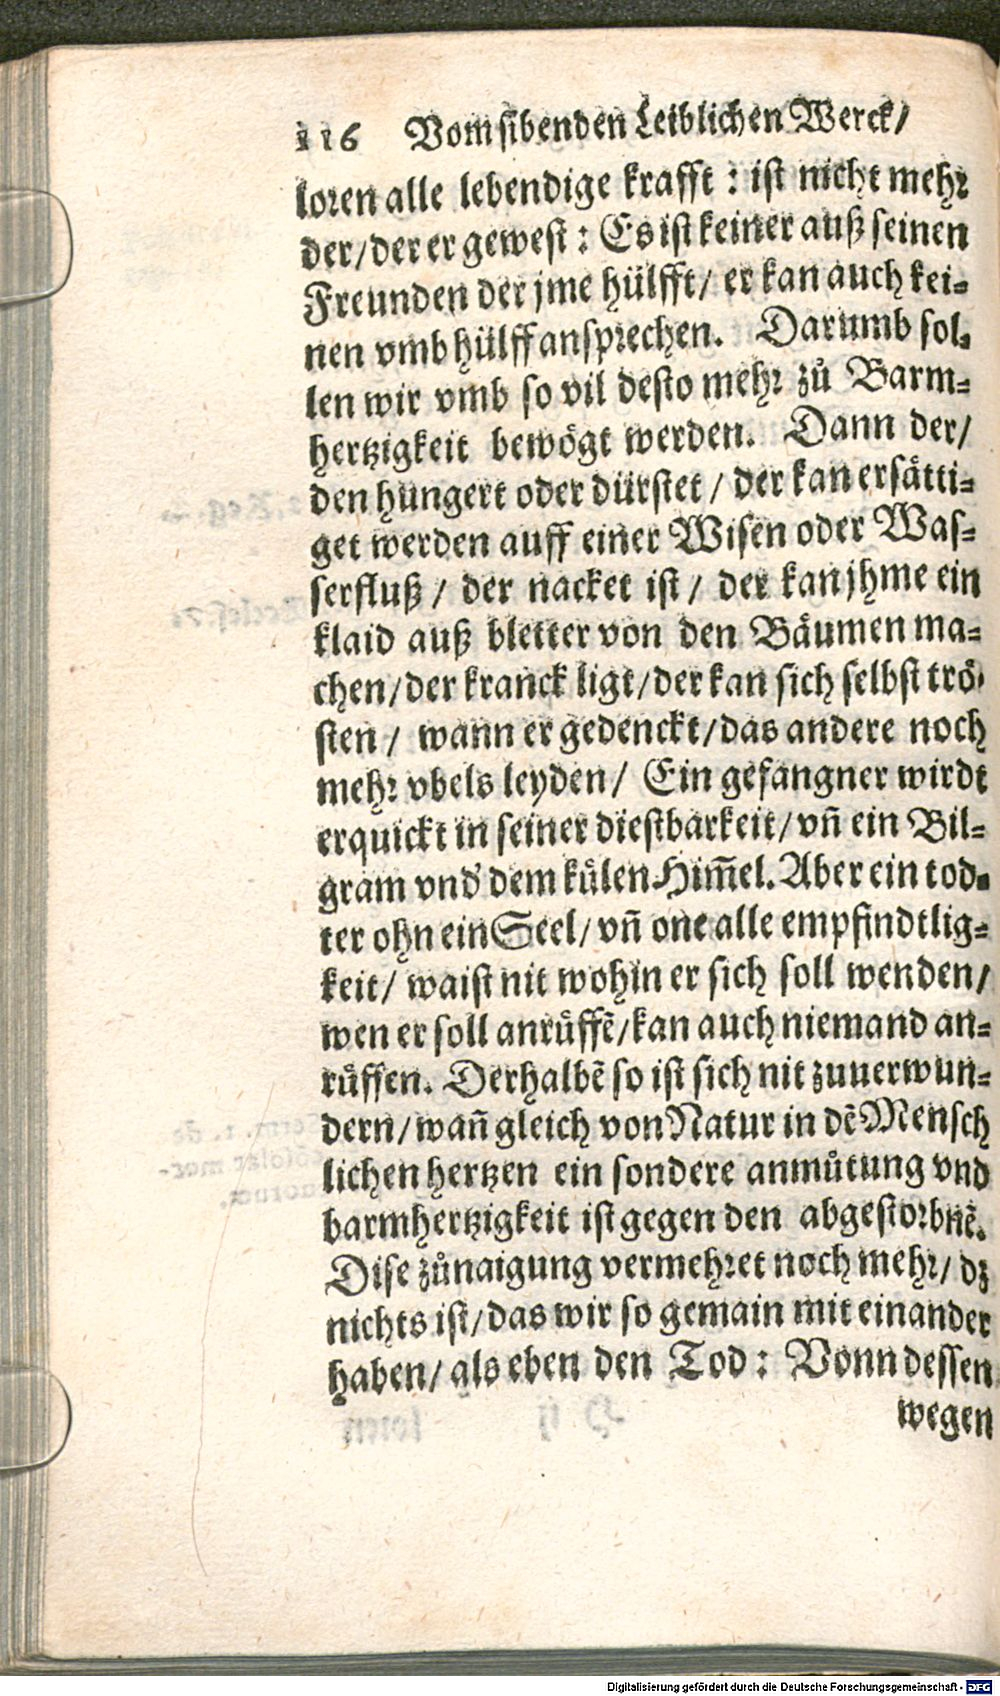 116 Vom sibenden Leiblichen Werck/
loren alle lebendige krafft: ist nicht mehr
der/der er gewest: Es ist keiner auß seinen
Freunden der jme hülfft/ er kan auch kei-
nen vmb hülff ansprechen. Darumb sol-
len wir vmb so vil desto mehr zů Barm-
hertzigkeit bewögt werden. Dann der/
den hungert oder dürstet/ der kan ersätti-
get werden auff einer Wisen oder Was-
serfluß/ der nacket ist/ der kan jhme ein
klaid auß bletter von den Bäumen ma-
chen/der kranck ligt/der kan sich selbst trö-
sten/ wann er gedenckt/das andere noch
mehr vbels leyden/ Ein gefangner wirdt
erquickt in seiner diestbarkeit/vñ ein Bil-
gram vnd dem külen Him̃el. Aber ein tod-
ter ohn ein Seel/vñ one alle empfindtlig-
keit/ waist nit wohin er sich soll wenden/
wen er soll anrůffẽ/kan auch niemand an-
růffen. Derhalbẽ so ist sich nit zuuerwun-
dern/wañ gleich von Natur in dẽ Mensch
lichen hertzen ein sondere anmůtung vnd
barmhertzigkeit ist gegen den abgestorbnẽ.
Dise zůnaigung vermehret noch mehr/dz
nichts ist/das wir so gemain mit einander
haben/als eben den Tod: Vonn dessen
wegen
Digitalisierung gefördert durch die Deutsche Forschungsgemeinschaft - DFG